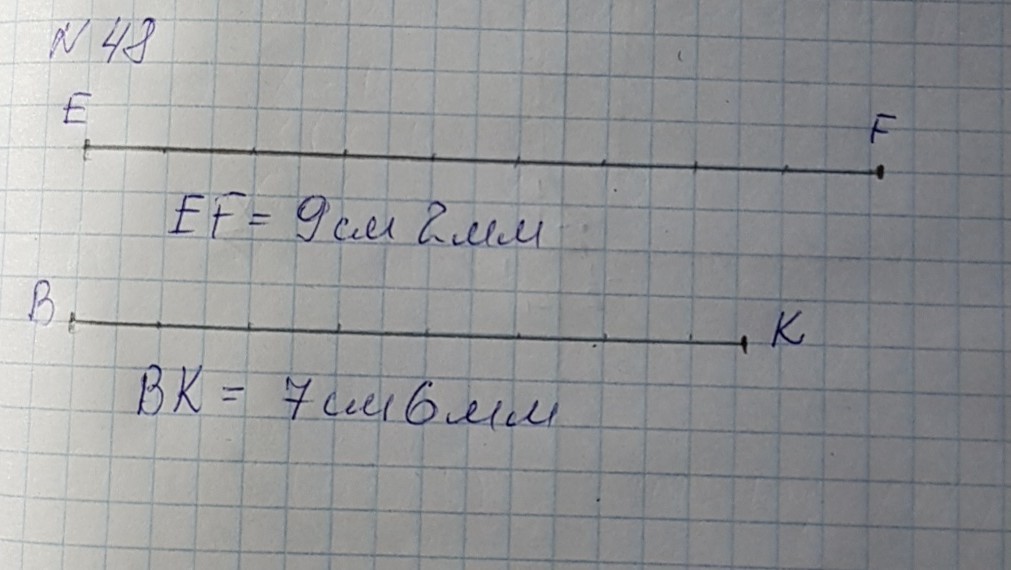 N 48
E F
EF = 9 см 2 мм
B K
BK = 7 см 6 мм